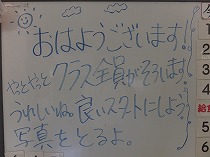 おはようございます!
やっとやっとクラス全員がそろいます。
うれしいね。良いスタートにしよう!
写真をとるよ。
4
5
6